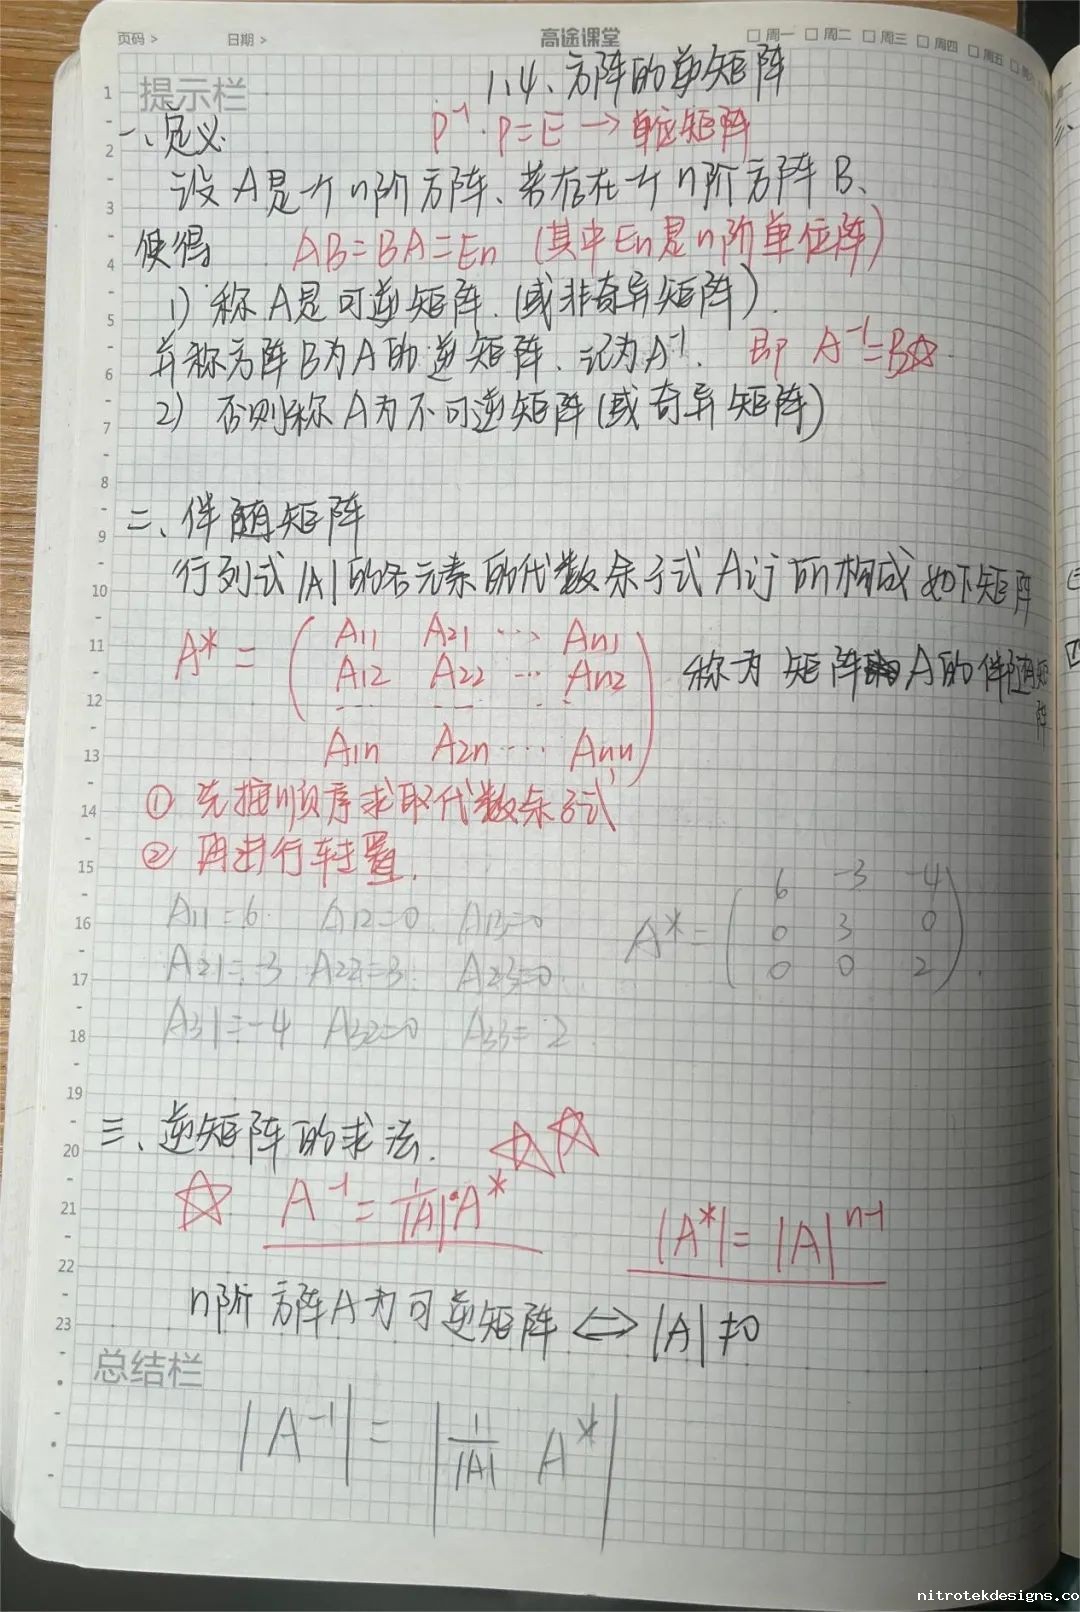 页码 > 日期 > 高途课堂 □ 周一 □ 周二 □ 周三 □ 周四 □ 周五 □
提示栏
1.4、方阵的逆矩阵
一、定义 P⁻¹·P=E → 单位矩阵
设A是一个n阶方阵、若存在一个n阶方阵B、
使得 AB=BA=En (其中En是n阶单位阵)
1) 称A是可逆矩阵.(或非奇异矩阵).
并称方阵B为A的逆矩阵、记为A⁻¹. 即 A⁻¹=B☆
2) 否则称A为不可逆矩阵(或奇异矩阵)
二、伴随矩阵
行列式|A|的各元素的代数余子式Aij所构成如下矩阵
A* = ( A11 A21 ⋯ An1
A12 A22 ⋯ An2
⋯ ⋯ ⋯
A1n A2n ⋯ Ann ) 称为矩阵A的伴随矩阵
① 先按顺序求取代数余子式
② 再进行转置.
A11=6. A12=0. A13=0
A21=-3 A22=3. A23=0.
A31=-4 A32=0 A33=2.
A*= ( 6 -3 -4
0 3 0
0 0 2 ).
三、逆矩阵的求法. ☆☆
☆ A⁻¹ = 1/|A|·A*
|A*| = |A|ⁿ⁻¹
n阶方阵A为可逆矩阵 ⇔ |A|≠0
总结栏
|A⁻¹| = |1/|A| A*|
1
2
3
4
5
6
7
8
9
10
11
12
13
14
15
16
17
18
19
20
21
22
23
nitrotekdesigns.co